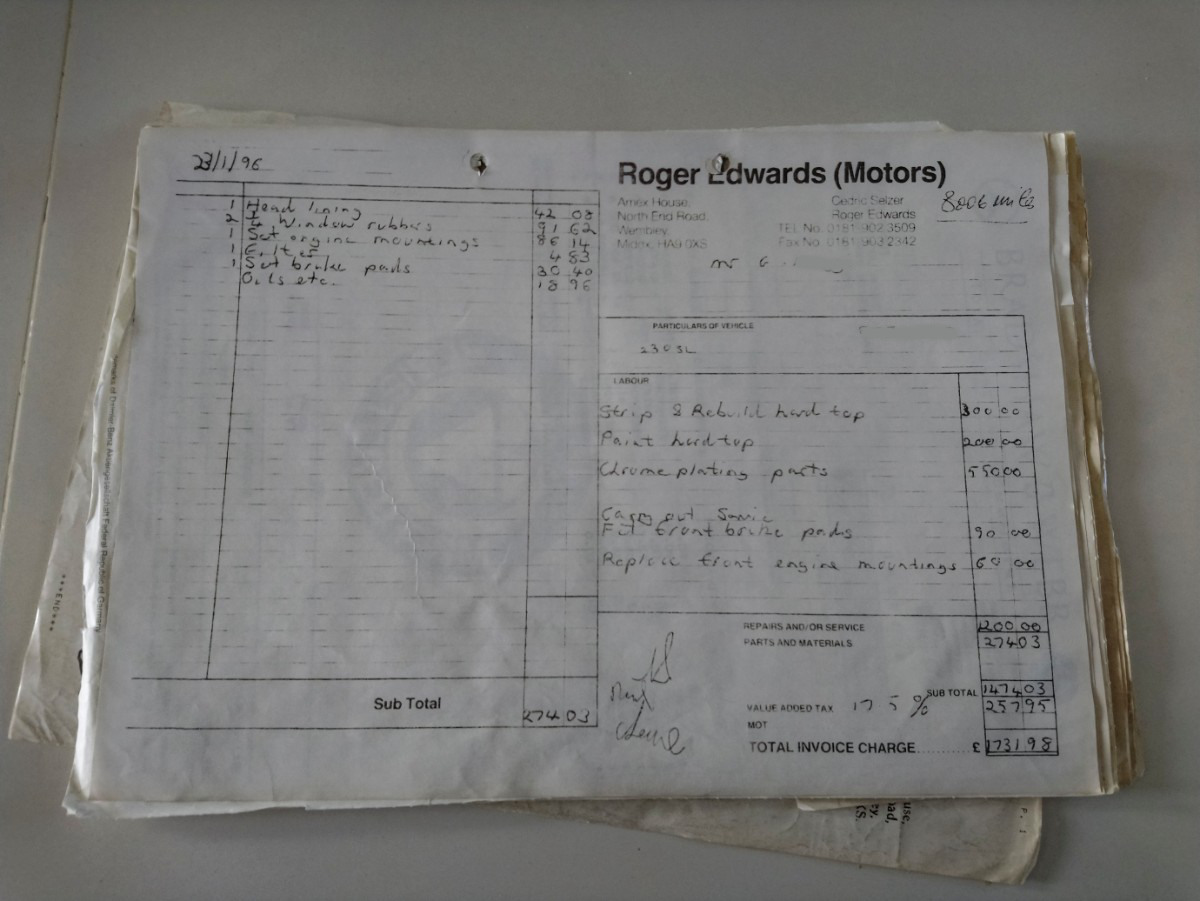 23/1/96
1 Head lining 42 08
2 Window rubbers 91 62
1 Set engine mountings 86 14
1 4 83
1 Set brake pads 30 40
Oils etc. 18 96
Sub Total 274 03
Roger Edwards (Motors)
Amex House,
North End Road,
Wembley,
Middx, HA9 0XS
Cedric Selzer
Roger Edwards
TEL No. 0181 902 3509
Fax No. 0181 903 2342
miles
Mr G.
PARTICULARS OF VEHICLE
230SL
LABOUR
Strip & Rebuild hard top 300 00
Paint hard top 200 00
Chrome plating parts 550 00
Carry out
Fit front brake pads 90 00
Replace front engine mountings 60 00
REPAIRS AND/OR SERVICE 1200 00
PARTS AND MATERIALS 274 03
SUB TOTAL 1474 03
VALUE ADDED TAX 17 5 % 257 95
MOT
TOTAL INVOICE CHARGE............ £ 1731 98
Daimler Benz Aktiengesellschaft Federal Republic of Germany
***END***
use,
oad,
P. 1